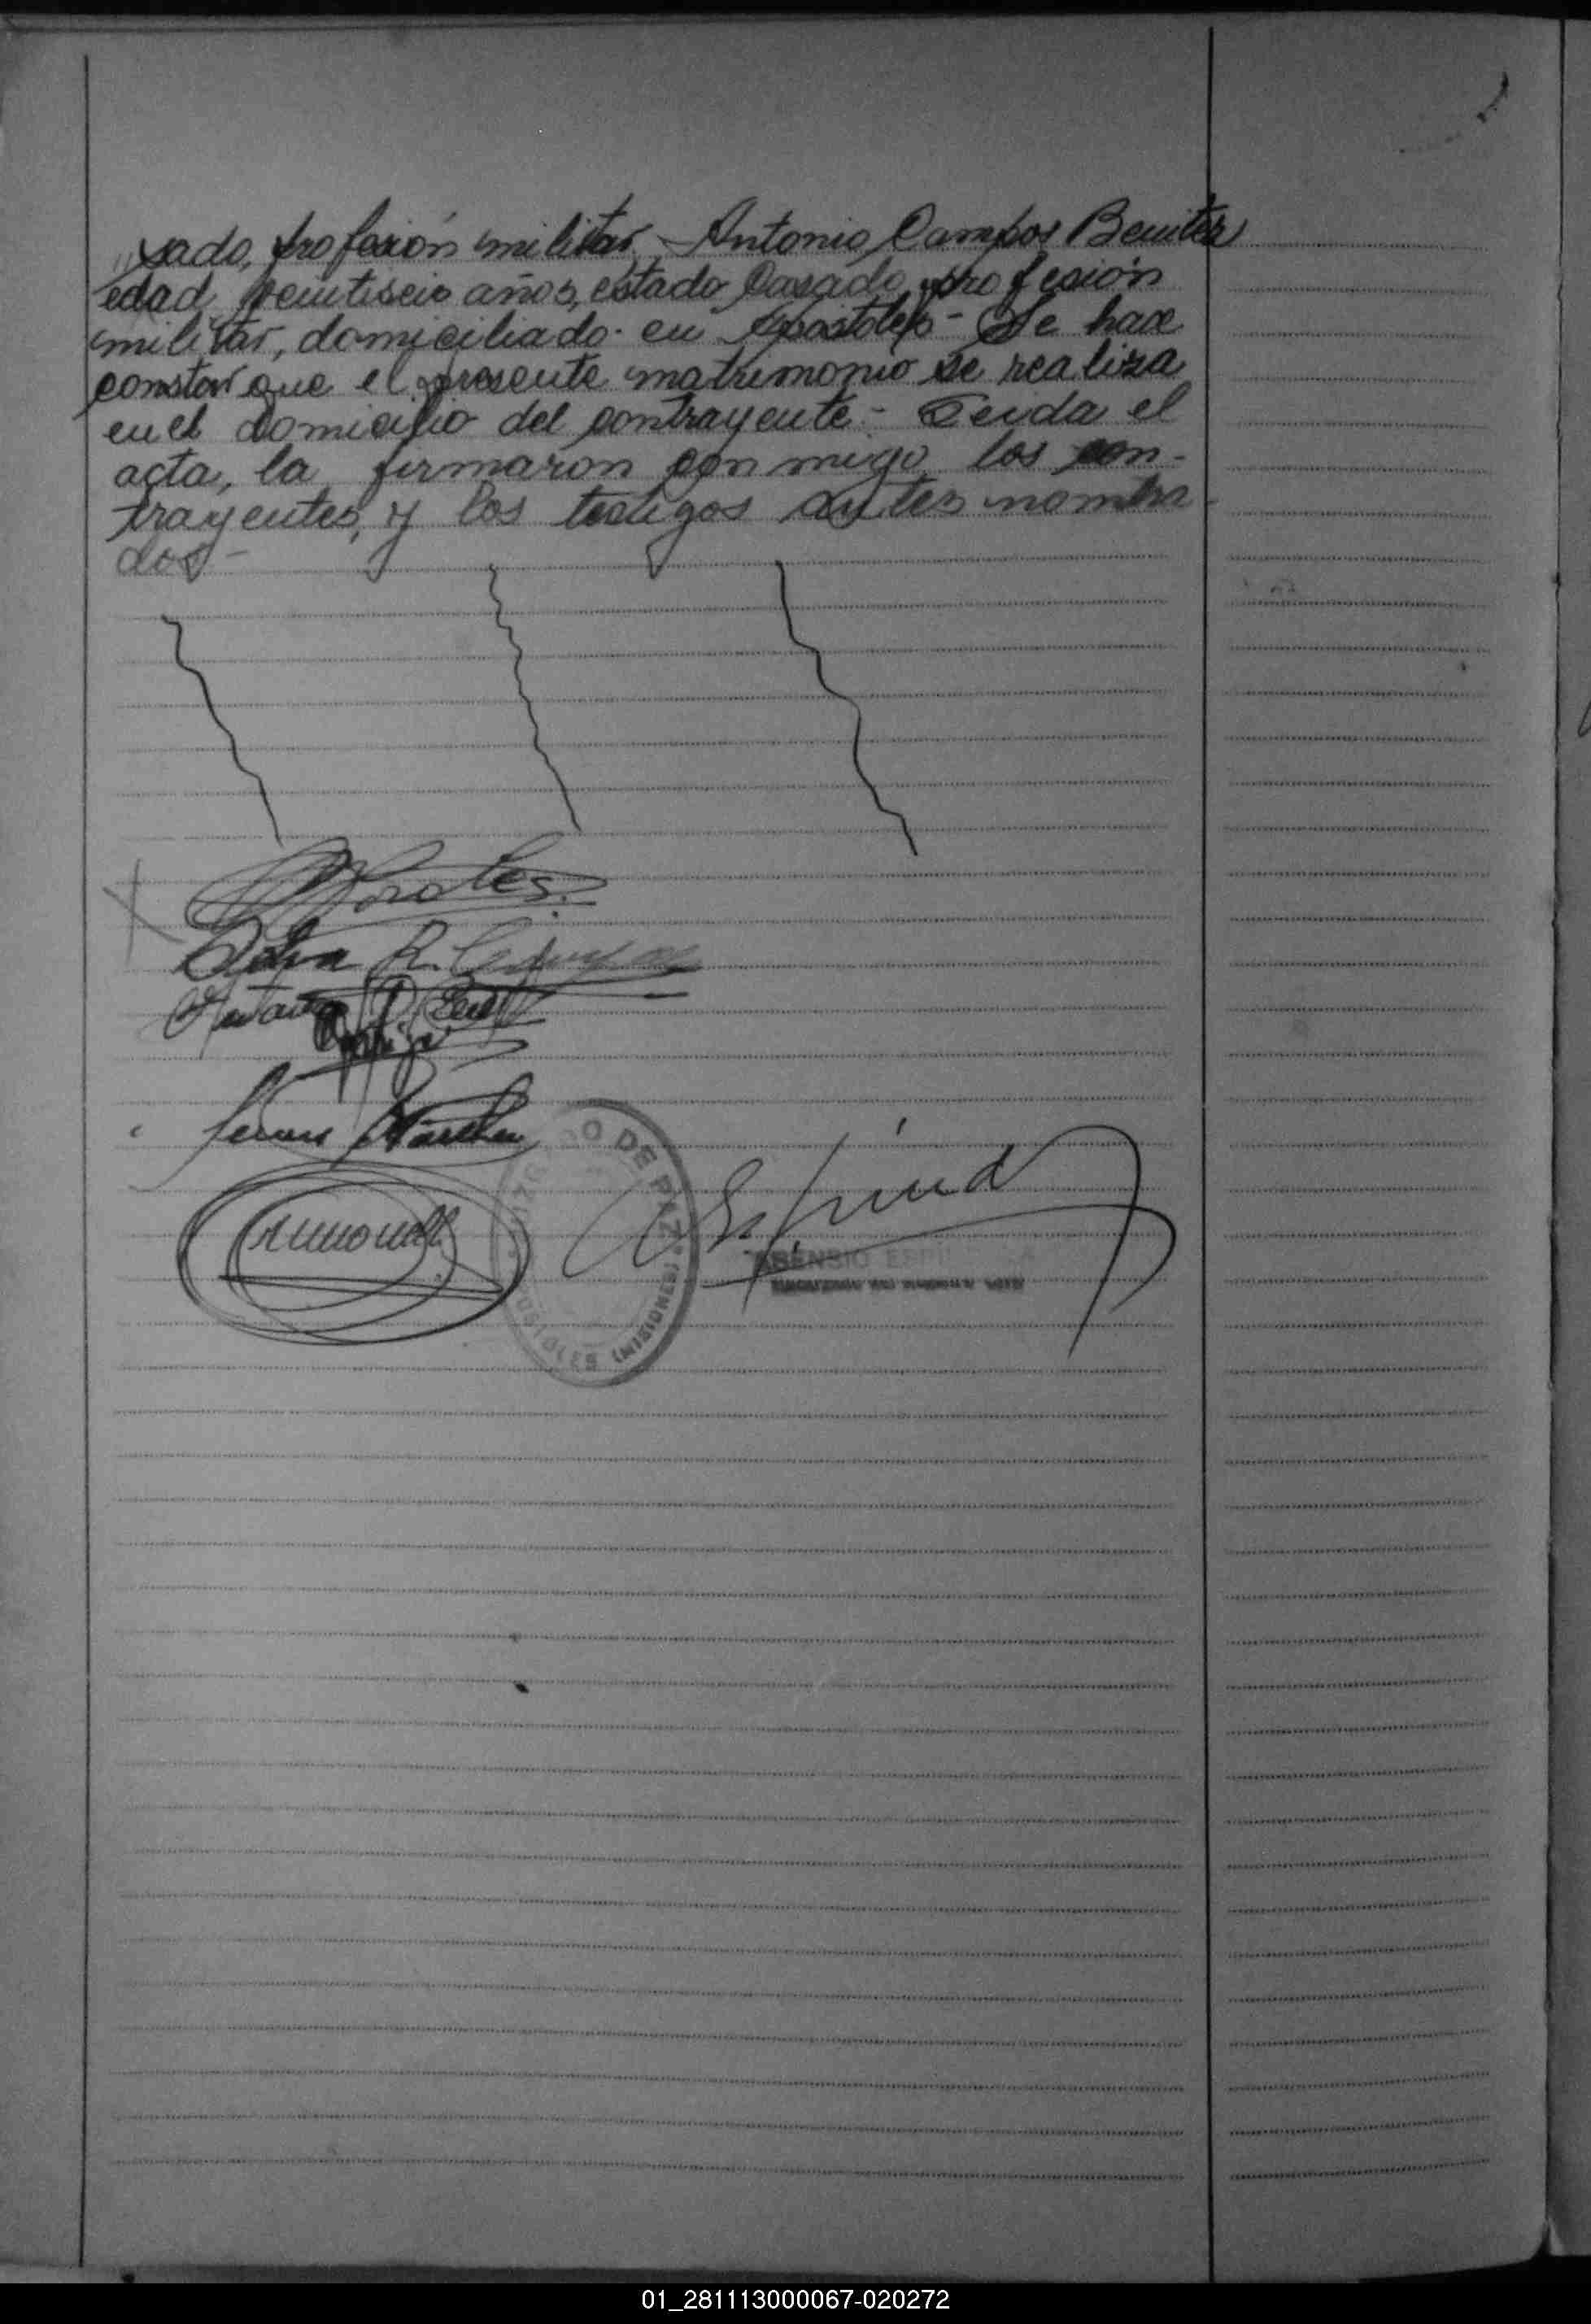 sado, profesión militar, - Antonio Campos Benitez
edad veintiseis años, estado Casado, profesión
militar, domiciliado en Apostoles - Se hace
constar que el presente matrimonio se realiza
en el domicilio del contrayente.- Leida el
acta, la firmaron conmigo, los con-
trayentes, y los testigos antes nombra-
dos-
Morales.
R.
JUZGADO DE PAZ
APOSTOLES (MISIONES)
Espind
01_281113000067-020272